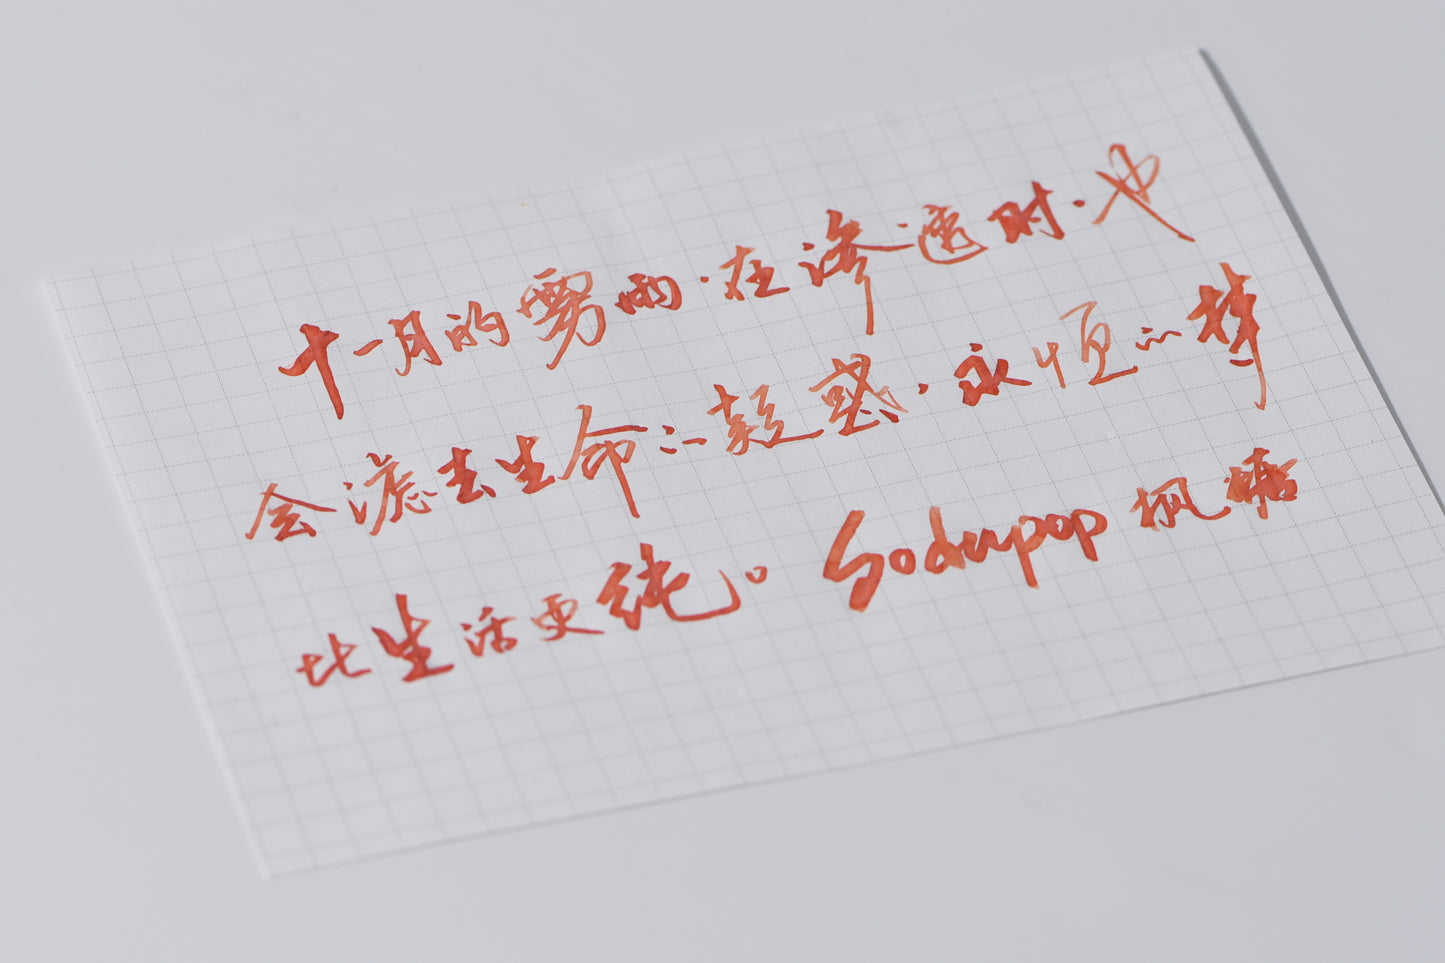 十一月的雾雨·在渗透时·也
会滤去生命的疑惑·永恒的梦
比生活更纯。Sodupop 枫晤